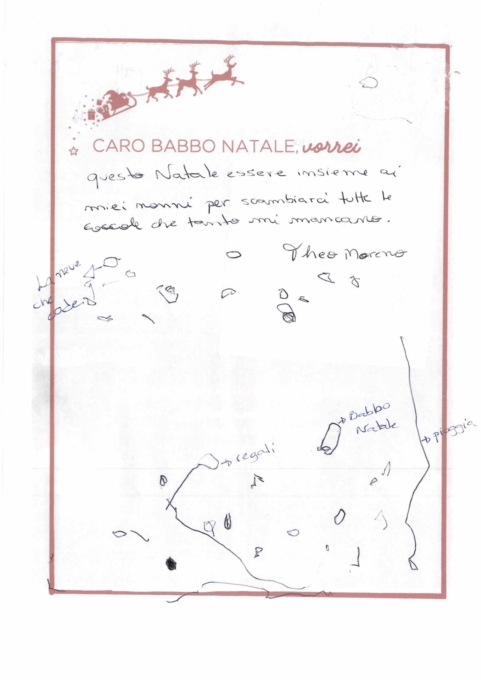 CARO BABBO NATALE, vorrei
questo Natale essere insieme ai
miei nonni per scambiarci tutte le
coccole che tanto mi mancano.
Theo Moreno
La neve
che
cade
Babbo
Natale
pioggia
regali